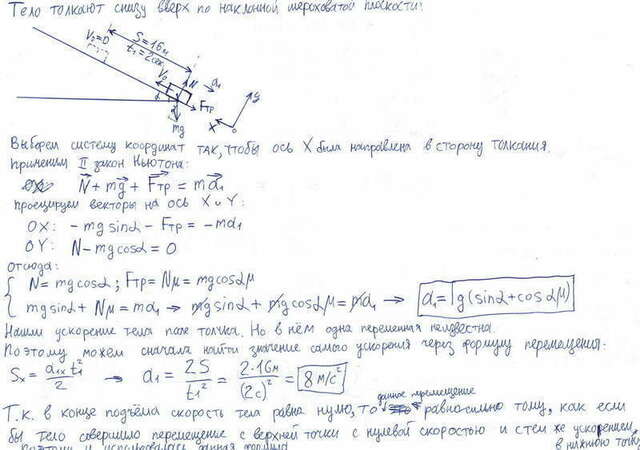 Тело толкают снизу вверх по наклонной шероховатой плоскости:
S=16м
t₁=2сек
V₂=0
V₀
N
a₁
Fтр
mg
α
y
x
Выберем систему координат так, чтобы ось X была направлена в сторону толкания.
Применим II закон Ньютона:
N + mg + Fтр = ma₁
проецируем векторы на ось X и Y:
OX: -mg sinα - Fтр = -ma₁
OY: N - mg cosα = 0
отсюда:
N = mg cosα ; Fтр = Nμ = mg cosα μ
mg sinα + Nμ = ma₁ → mg sinα + mg cosα μ = ma₁ → a₁ = g(sinα + cosα μ)
Нашли ускорение тела после толчка. Но в нём одна переменная неизвестна.
Поэтому можем сначала найти значение самого ускорения через формулу перемещения:
Sₓ = a₁ₓt₁²/2 → a₁ = 2S/t₁² = 2·16м/(2с)² = 8 м/с²
данное перемещение
Т.к. в конце подъёма скорость тела равна нулю, то равно-сильно тому, как если
бы тело совершило перемещение с верхней точки с нулевой скоростью и с тем же ускорением
в нижнюю точку
Поэтому и использовалась данная формула